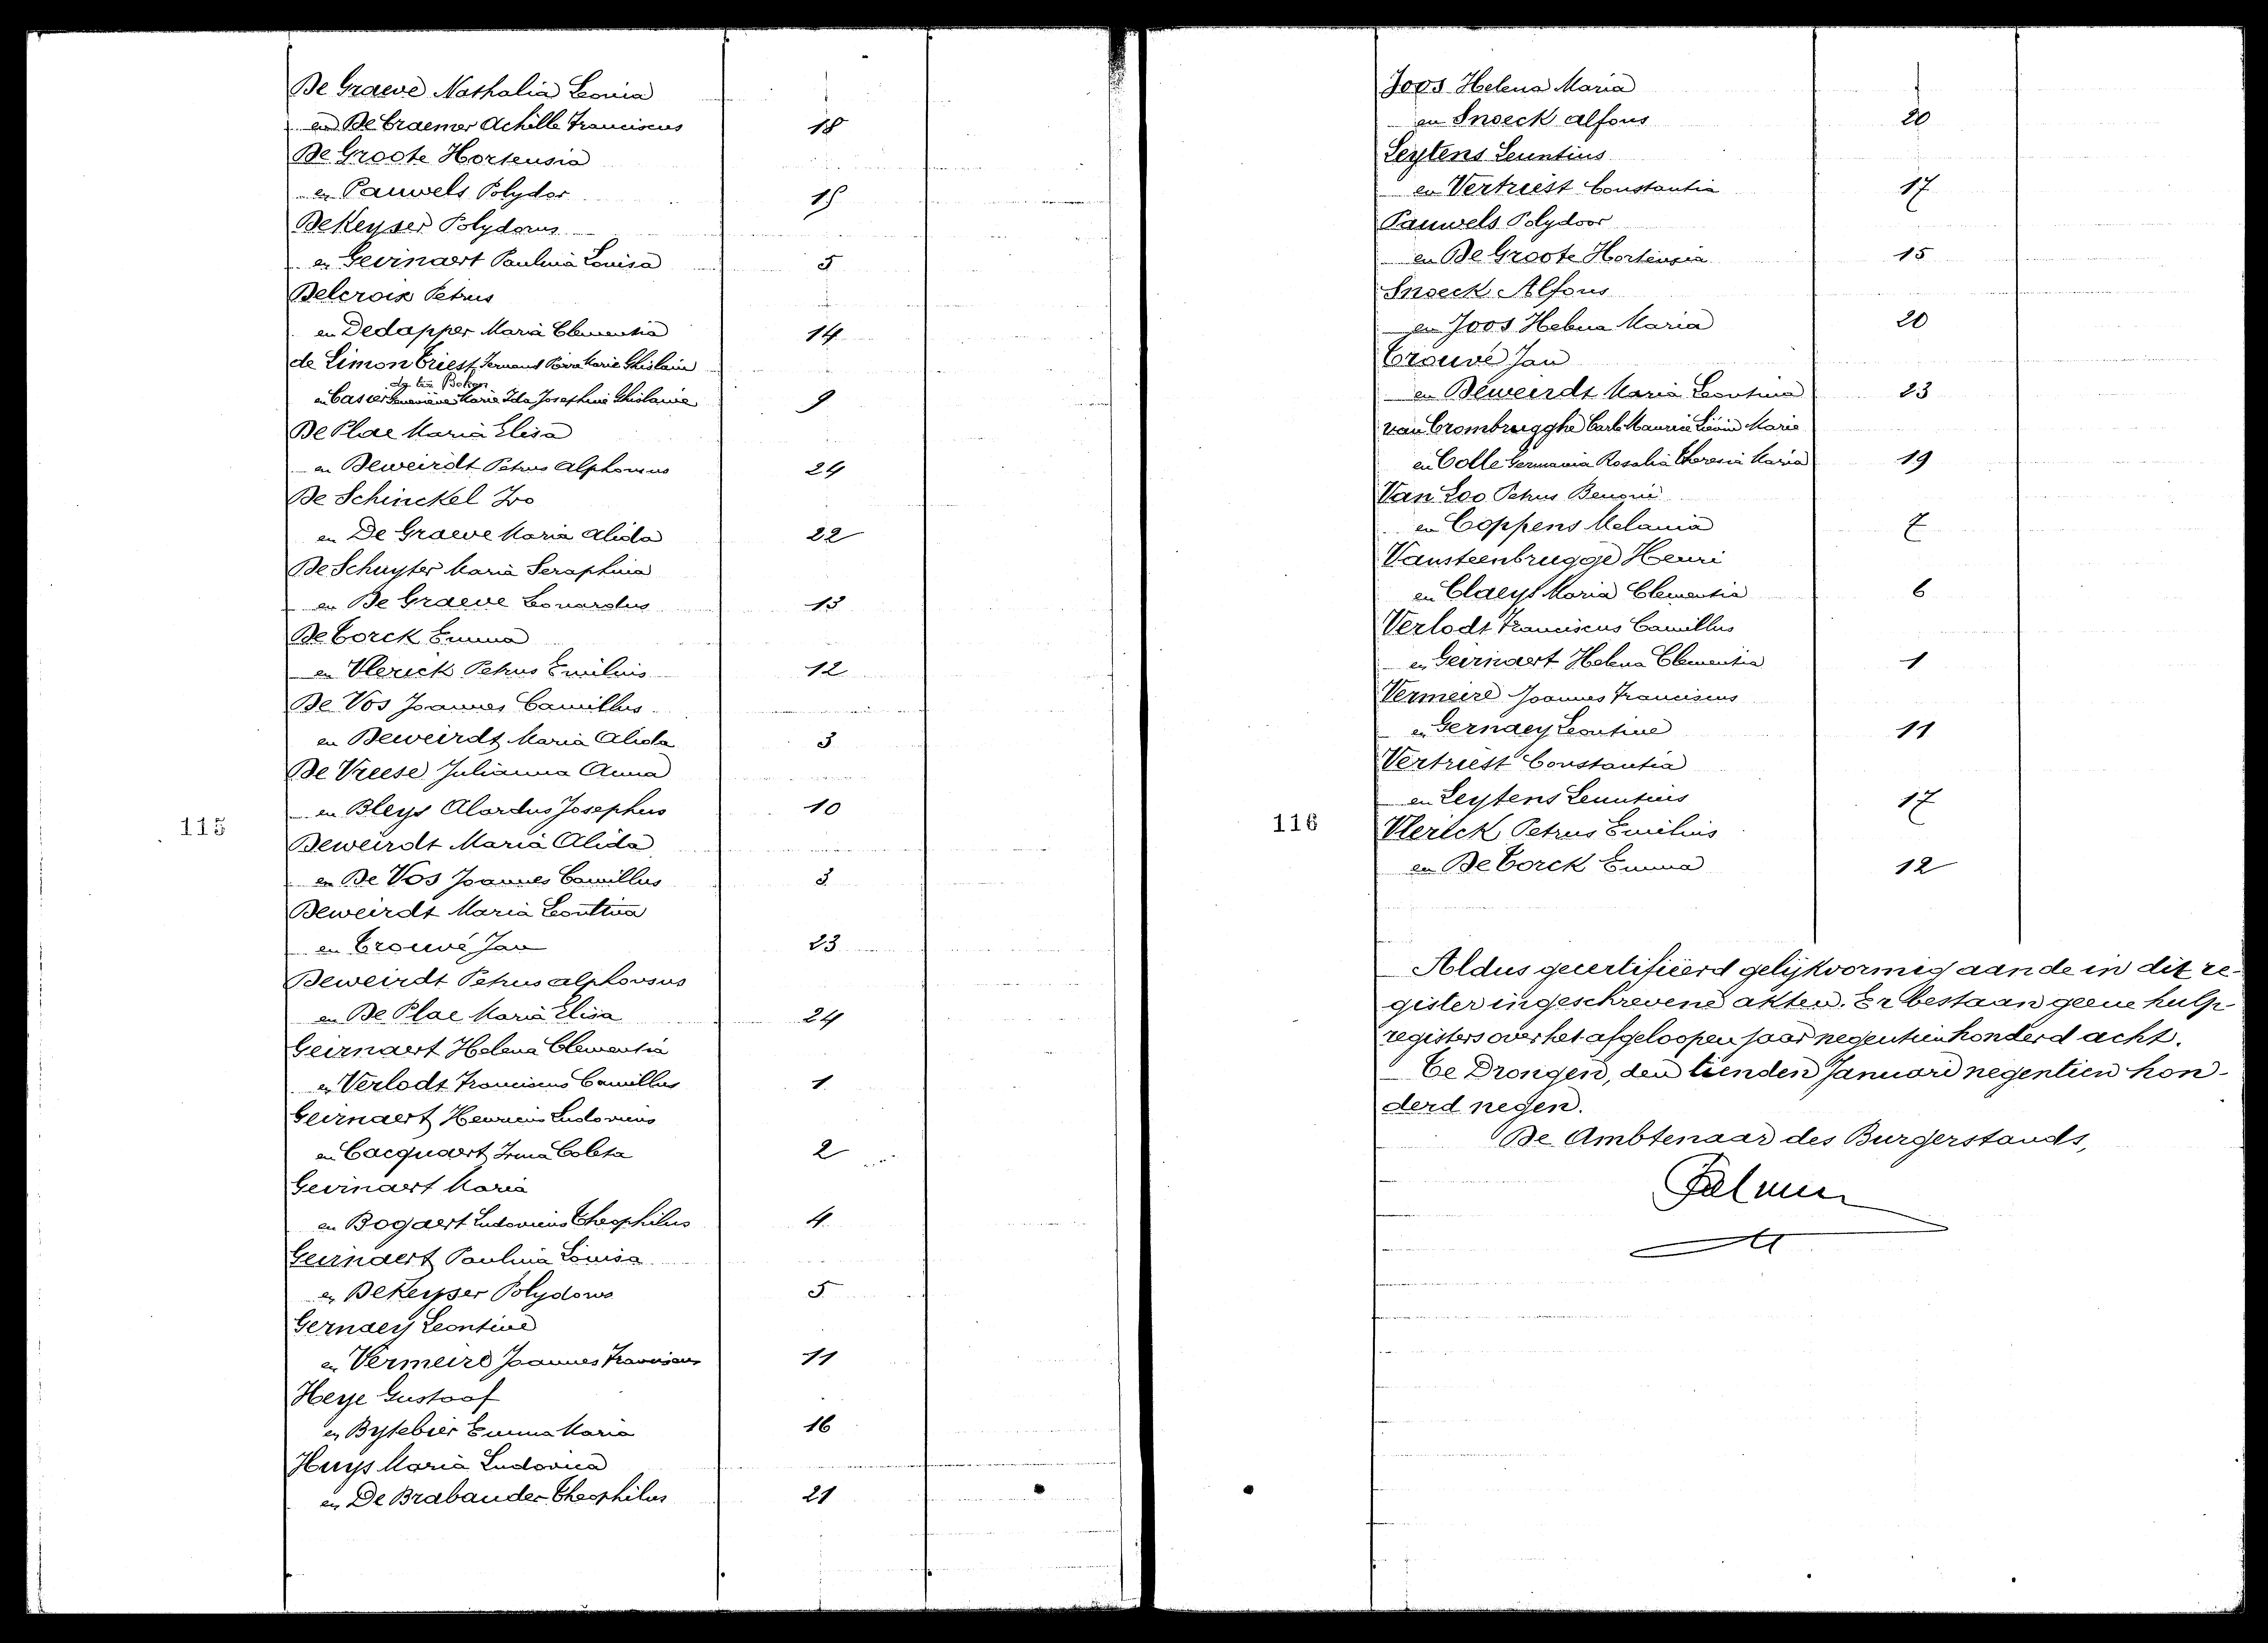 De Graeve Nathalia Leonia
en De Craemer Achille Franciscus 18
De Groote Hortensia
en Pauwels Polydor 15
De Keyser Polydorus
en Geirnaert Paulina Louisa 5
Delcroix Petrus
en Dedapper Maria Clementia 14
de Limon Triest Fernand Marie Ghislain
en Casier Geneviève Marie Ida Josephine Ghislaine 9
De Plae Maria Elisa
en Deweirdt Petrus Alphonsus 24
De Schinckel Ivo
en De Graeve Maria Alida 22
De Schuyter Maria Seraphina
en De Graeve Leonardus 13
De Torck Emma
en Vlerick Petrus Emilius 12
De Vos Joannes Camillus
en Deweirdt Maria Alida 3
De Vreese Julianna Anna
en Bleys Alardus Josephus 10
115
Deweirdt Maria Alida
en De Vos Joannes Camillus 3
Deweirdt Maria Leontina
en Trouvé Jan 23
Deweirdt Petrus alphonsus
en De Plae Maria Elisa 24
Geirnaert Helena Clementia
en Verlodt Franciscus Camillus 1
Geirnaert Henricus Ludovicus
en Cacquaert Irma Coleta 2
Geirnaert Maria
en Bogaert Ludovicus Theophilus 4
Geirnaert Paulina Louisa
en De Keyser Polydorus 5
Gernaey Leontine
en Vermeire Joannes Franciscus 11
Heye Gustaaf
en Bytebier Emma Maria 16
Huys Maria Ludovica
en De Brabander Theophilus 21
Joos Helena Maria
en Snoeck alfons 20
Leytens Leuntius
en Vertriest Constantia 17
Pauwels Polydoor
en De Groote Hortensia 15
Snoeck Alfons
en Joos Helena Maria 20
Trouvé Jan
en Deweirdt Maria Leontina 23
van Crombrugghe Carl Maurice Liévin Marie
en Colle Germania Rosalia Theresia Maria 19
Van Loo Petrus Benonie
en Coppens Melania 7
Vansteenbrugge Henri
en Claeys Maria Clementia 6
Verlodt Franciscus Camillus
en Geirnaert Helena Clementia 1
Vermeire Joannes Franciscus
en Gernaey Leontine 11
Vertriest Constantia
en Leytens Leuntius 17
116
Vlerick Petrus Emilius
en De Torck Emma 12
Aldus gecertifiëerd gelijkvormig aan de in dit re-
gister ingeschrevene akten. Er bestaan geene hulp-
registers over het afgeloopen jaar negentienhonderd acht.
Te Drongen, den tienden Januari negentien hon-
derd negen.
De Ambtenaar des Burgerstands,